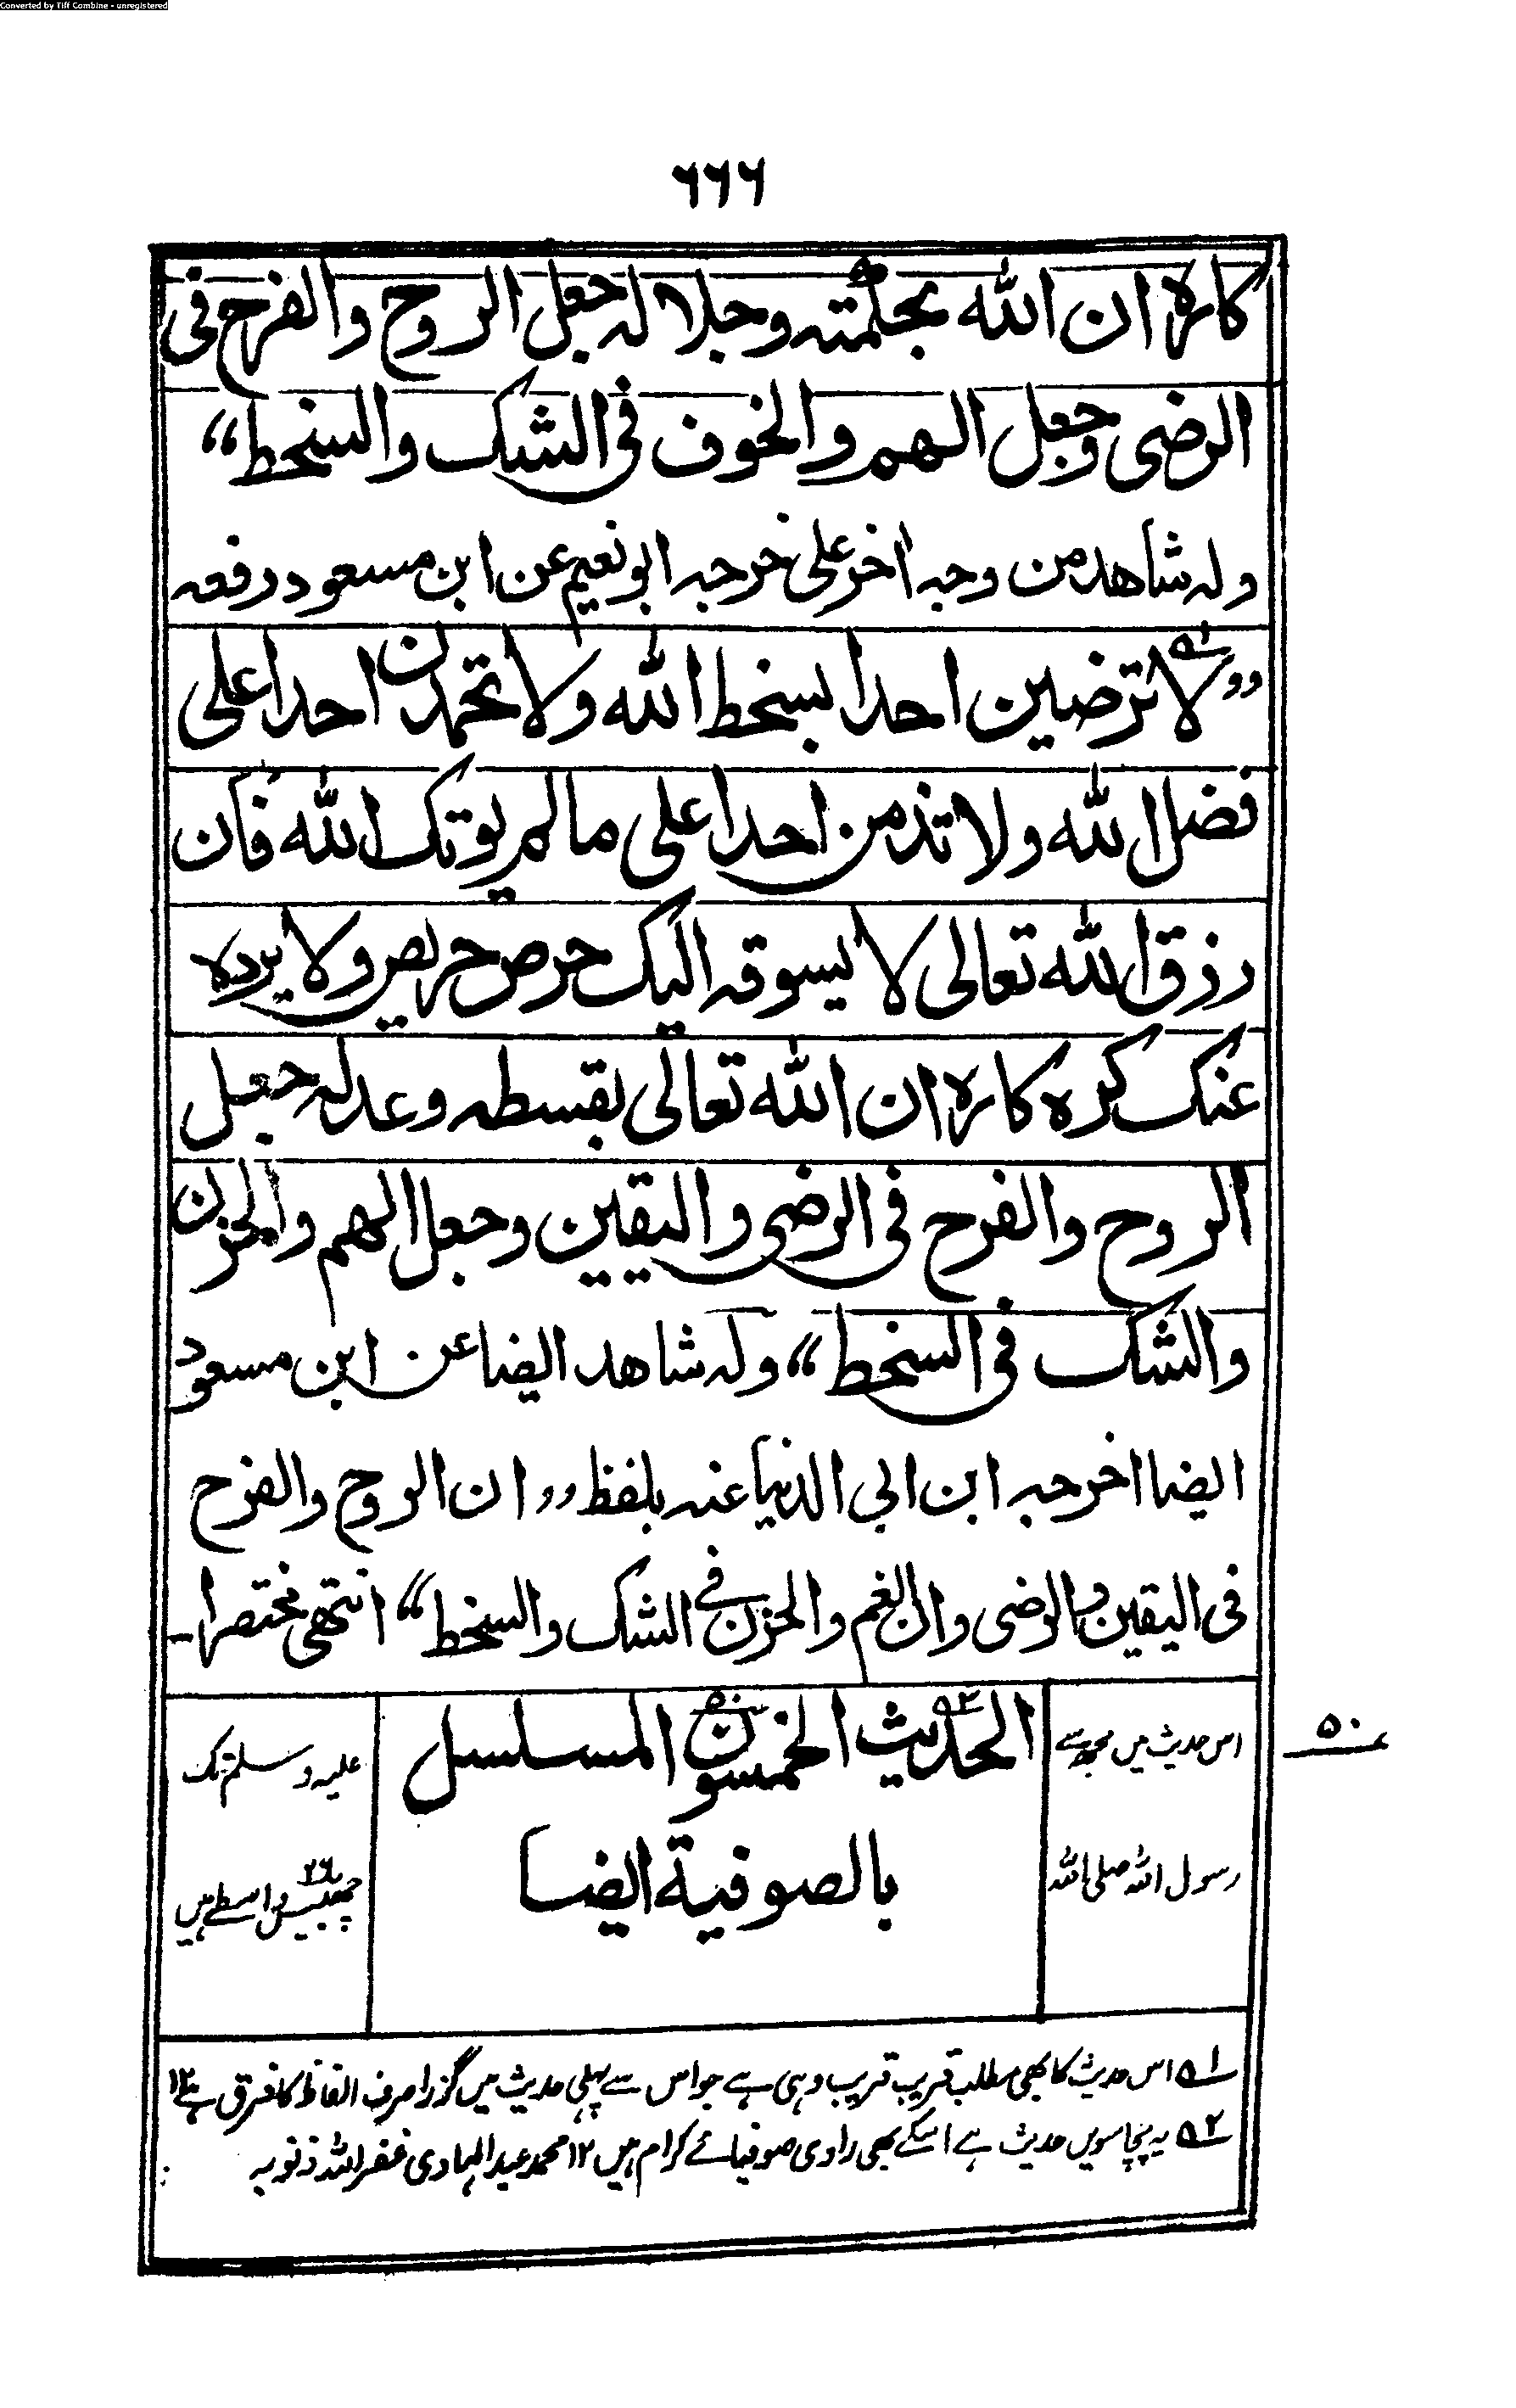 Converted by Tiff Combine - unregistered
۶۶۶
كاره ان الله بحكمته وجلاله جعل الروح والفرح فى
الرضى وجعل الهم والخوف فى الشك والسخط“
وله شاهد من وجه اخر على خرجه ابو نعيم عن ابن مسعود رفعه
”لا ترضين احدا بسخط الله ولا تحمدن احدا على
فضل الله ولا تذمن احدا على مالم يوتك الله فان
رزق الله تعالى لا يسوقه اليك حرص حريص ولا يرده
عنك كره كاره ان الله تعالى بقسطه وعدله جعل
الروح والفرح فى الرضى واليقين وجعل الهم والحزن
والشك فى السخط“ وله شاهد ايضا عن ابن مسعود
ايضا اخرجه ابن ابى الدنيا عنه بلفظ ”ان الروح والفرح
فى اليقين والرضى وان الغم والحزن فى الشك والسخط“ انتهى مختصرا۔
نمبر ۵۰
اس حدیث میں مجھ سے
رسول اللہ صلی اللہ
الحديث الخمسون المسلسل
بالصوفية ايضا
علیہ وسلم تک
چھبیس ۲۶ واسطے ہیں
۱ اس حدیث کا بھی مطلب قریب قریب وہی ہے جو اس سے پہلی حدیث میں گزرا صرف الفاظ کا فرق ہے ۱۲
۲ یہ پچاسویں حدیث ہے اسکے بھی راوی صوفیائے کرام ہیں ۱۲ محمد عبد الہادی غفر اللہ ذنوبہ